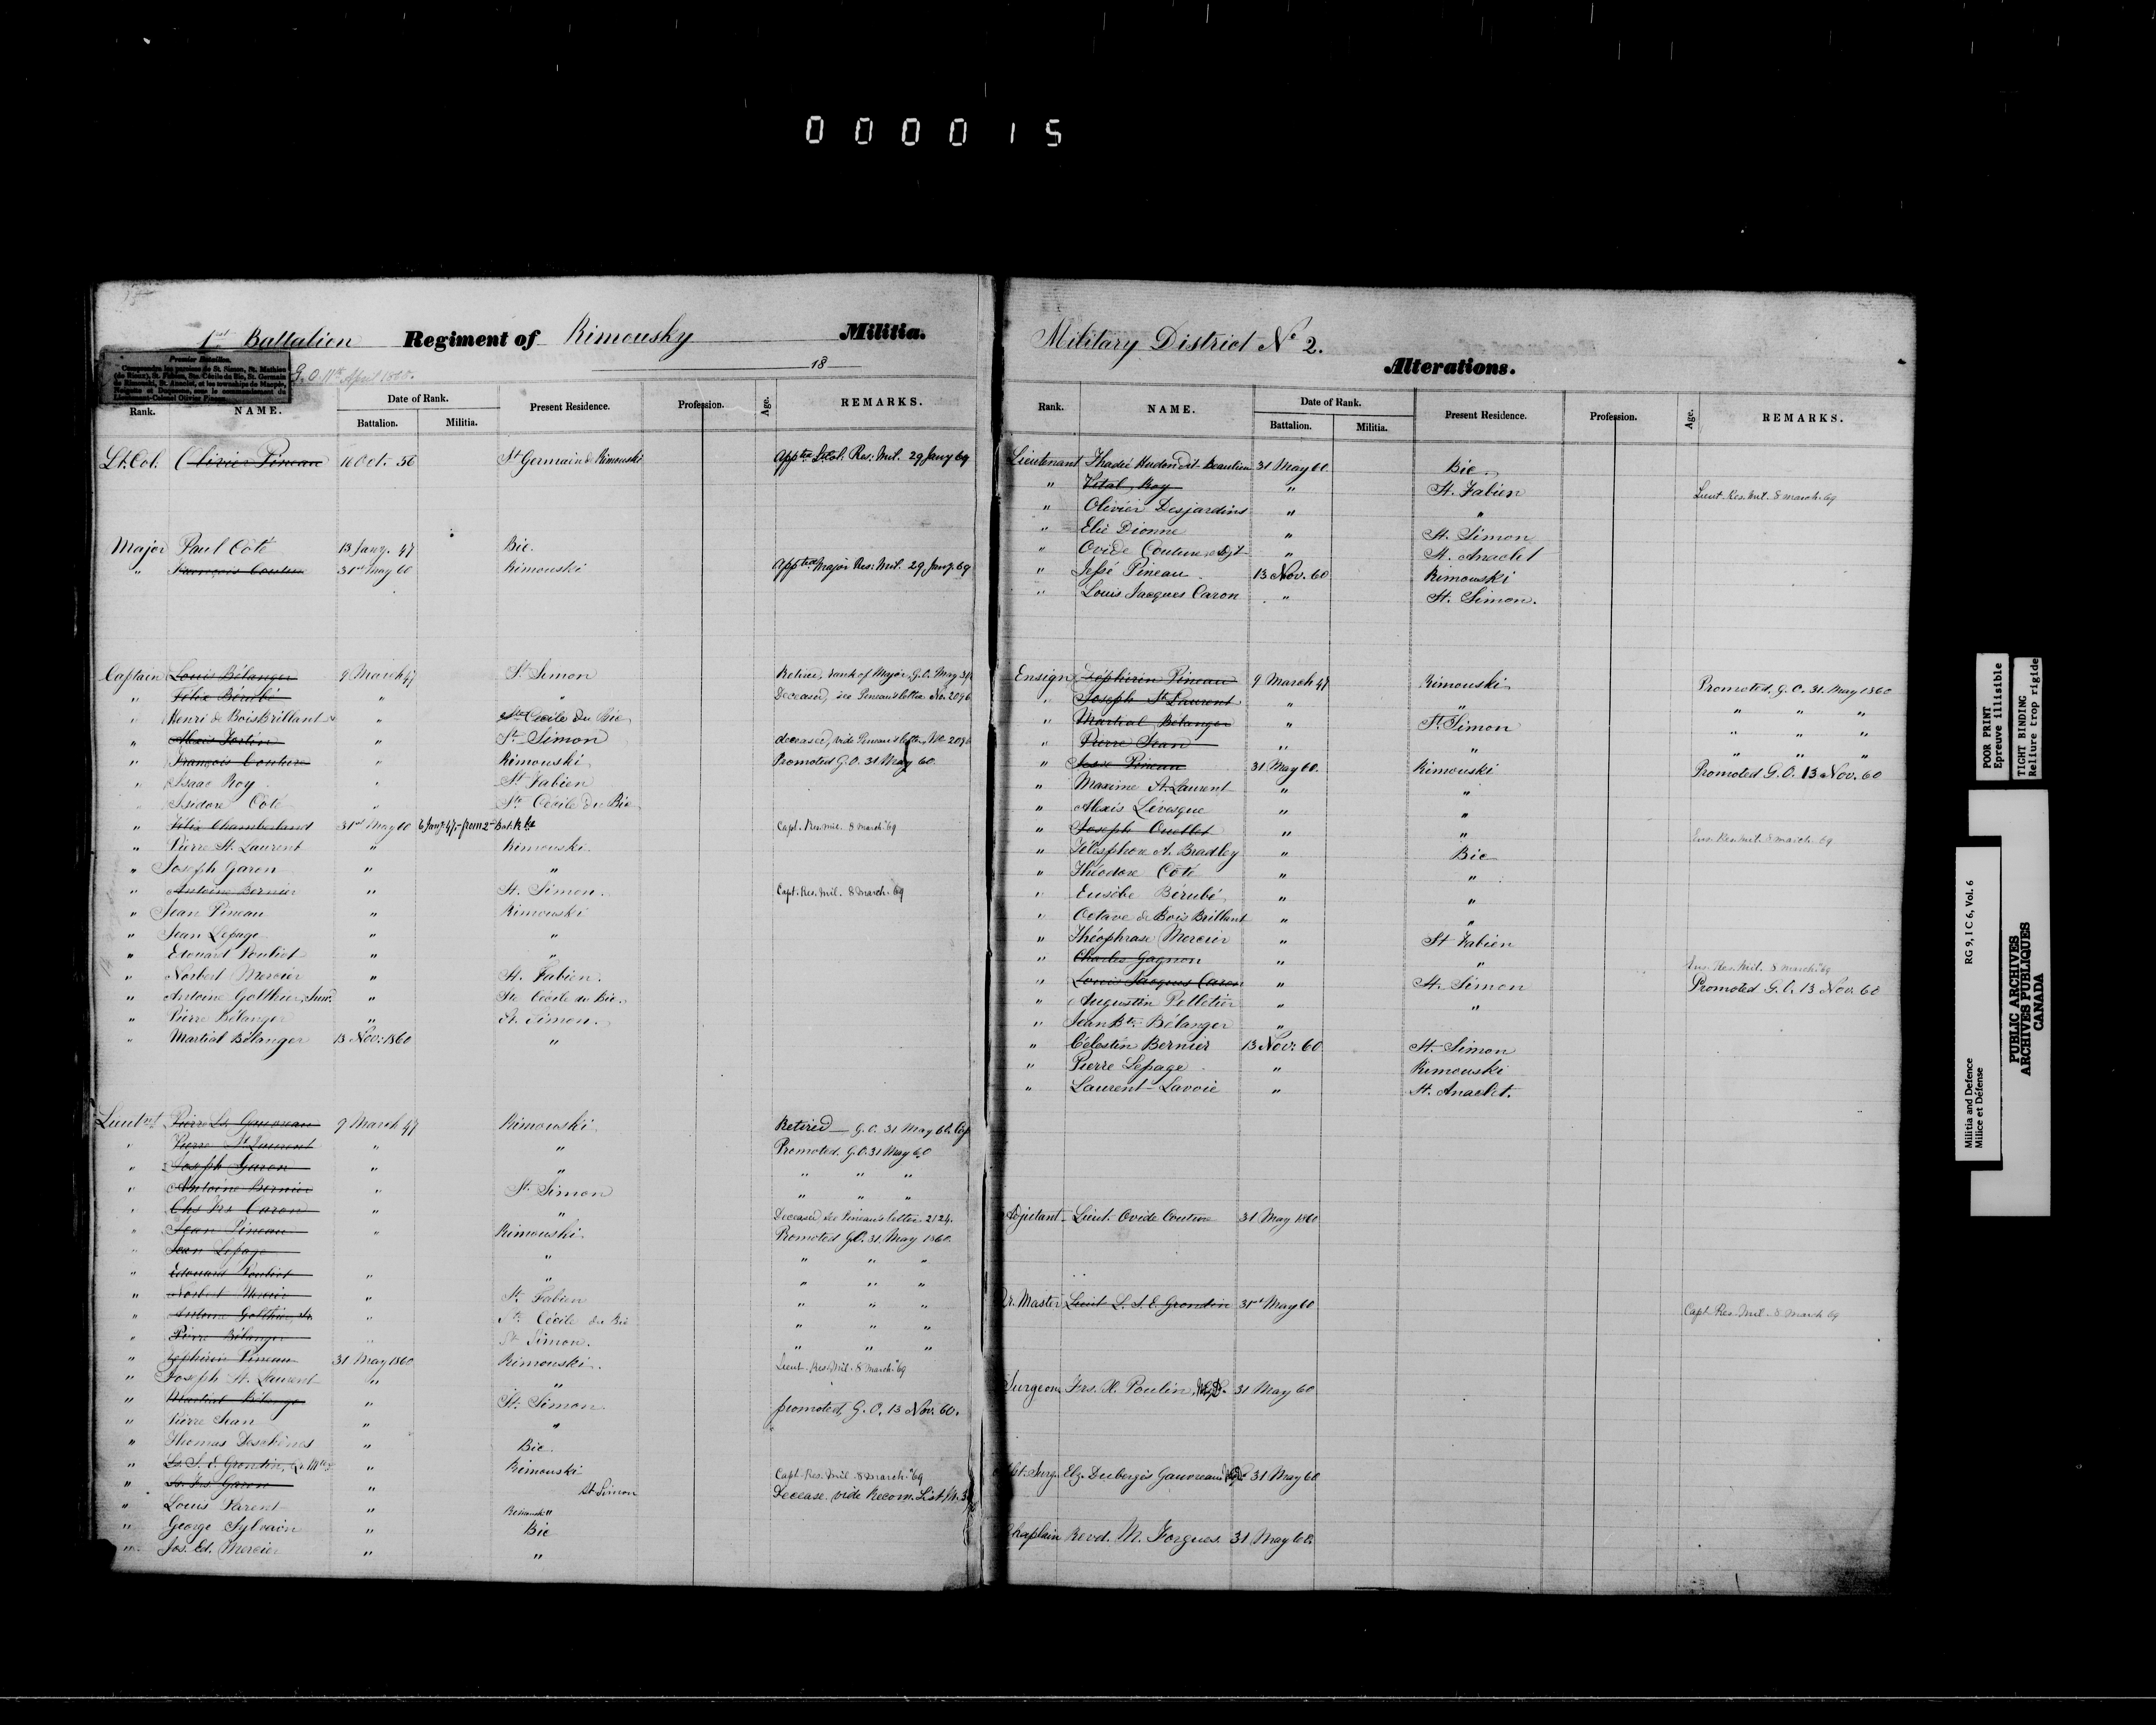 000015
1st Battalion Regiment of Rimousky Militia.
18
Premier Bataillon.
Comprendra les paroisses de St. Simon, St. Mathieu
(de Rioux), St. Fabien, Ste. Cécile de Bic, St. Germain
de Rimouski, St. Anaclet, et les townships de Macpès,
Neigette et Duquesne, sous le commandement du
Lieutenant-Colonel Olivier Pineau.
G. O. 11th April
Rank. NAME. Date of Rank. Battalion. Militia. Present Residence. Profession. Age. REMARKS.
Lt. Col. Olivier Pineau 16 Oct. 56 St Germain de Rimouski Appted Lt Col. Res: Mil. 29 Jany 69
Major Paul Coté 13 Jany. 47 Bic.
" François Couture 31st May 60 Rimouski Appted Major Res: Mil. 29 Jany. 69
Captain Louis Bélanger 9 March 47 St Simon Retired, rank of Major, G.O. May 31
" Félix Bérubé " " Deceased, see Pineau's letter No. 2096
" Henri de BoisBrillant " Ste Cécile du Bic
" Alexis Fortin " St Simon deceased, vide Pineau's letter, No 2096
" François Couture " Rimouski Promoted G.O. 31 May 60
" Isaac Roy " St Fabien
" Isidore Coté " Ste Cécile du Bic
" Félix Chamberland 31st May 60 6 Jany. 47,-from 2d Bat. Capt. Res. mil. 8 March "69
" Pierre St. Laurent " Rimouski
" Joseph Garon " "
" Antoine Bernier " St. Simon. Capt. Res. mil. 8 March. 69
" Jean Pineau " Rimouski
" Jean Lepage " "
" Edouard Pouliot " "
" Norbert Mercier " St. Fabien.
" Antoine Golthier, Junr. " Ste Cécile du Bic.
" Pierre Bélanger " St. Simon.
" Martial Bélanger 13 Nov: 1860 "
Lieutnt Pierre Ls. Gauvreau 9 March 47 Rimouski Retired G.O. 31 May 60.
" Pierre St Laurent " " Promoted, G.O. 31 May 60
" Joseph Garon " " " " "
" Antoine Bernier " St Simon " " "
" Chs Frs Caron " " Deceased see Pineau's letter 2124.
" Jean Pineau " Rimouski Promoted G.O. 31 May 1860.
" Jean Lepage " " " "
" Edouard Pouliot " " " " "
" Norbert Mercier " St. Fabien " " "
" Antoine Golthier, Jr " Ste Cécile du Bic " " "
" Pierre Bélanger " St Simon. " " "
" Zéphirin Pineau 31 May 1860 Rimouski. Lieut. Res. Mil. 8 March "69
" Joseph St. Laurent " "
" Martial Bélanger " St. Simon promoted, G.O. 13 Nov. 60.
" Pierre Jean " "
" Thomas Deschênes " Bic.
" Ls. S. E. Grondin, Qr. Mr. " Rimouski Capt. Res. Mil 8 March. "69
" Ls. Frs. Garon " St Simon Decease vide Recom. List
" Louis Parent " Rimouski
" George Sylvain " Bic
" Jos. Ed. Mercier " "
Military District No 2.
Alterations.
Rank. NAME. Date of Rank. Battalion. Militia. Present Residence. Profession. Age. REMARKS.
Lieutenant Thadée Hudon dit Beaulieu 31 May 60 Bic
" Vital Roy " St. Fabien Lieut. Res. Mil. 8 March. 69
" Olivier Desjardins " "
" Elie Dionne " St. Simon
" Ovide Couture, Adjt " St. Anaclet
" Jessé Pineau 13 Nov. 60 Rimouski
" Louis Jacques Caron " St. Simon.
Ensign Zéphirin Pineau 9 March 47 Rimouski Promoted, G.O. 31. May 1860
" Joseph St Laurent " " " " "
" Martial Bélanger " St. Simon " " "
" Pierre Jean " " " " "
" Jessé Pineau 31 May 60 Rimouski Promoted G.O. 13 Nov. 60
" Maxime St. Laurent " "
" Alexis Lévesque " "
" Joseph Ouellet " " Ens. Res. Mil. 8 March. 69
" Télesphore A. Bradley " Bic
" Théodore Coté " "
" Eusèbe Bérubé " "
" Octave de Bois Brillant " "
" Théophrase Mercier " St Fabien
" Charles Gagnon " " Ens. Res. Mil. 8 March. "69
" Louis Jacques Caron " St. Simon Promoted G.O. 13 Nov. 60
" Augustin Pelletier " "
" Jean Bte. Bélanger "
" Célestin Bernier 13 Nov: 60 St. Simon
" Pierre Lepage " Rimouski
" Laurent Lavoie " St. Anaclet.
Adjutant Lieut. Ovide Couture 31 May 1860
Qr. Master Lieut L. S. E. Grondin 31st May 60 Capt. Res. Mil. 8 March 69
Surgeon Frs. X. Poulin, M.D. 31 May 60
Asst. Surg. Elz. Duberges Gauvreau 31 May 60
Chaplain Revd. M. Forgues. 31 May 60.
POOR PRINT
Epreuve illisible
TIGHT BINDING
Reliure trop rigide
Militia and Defence
Milice et Défense
RG 9, I C 6, Vol. 6
PUBLIC ARCHIVES
ARCHIVES PUBLIQUES
CANADA